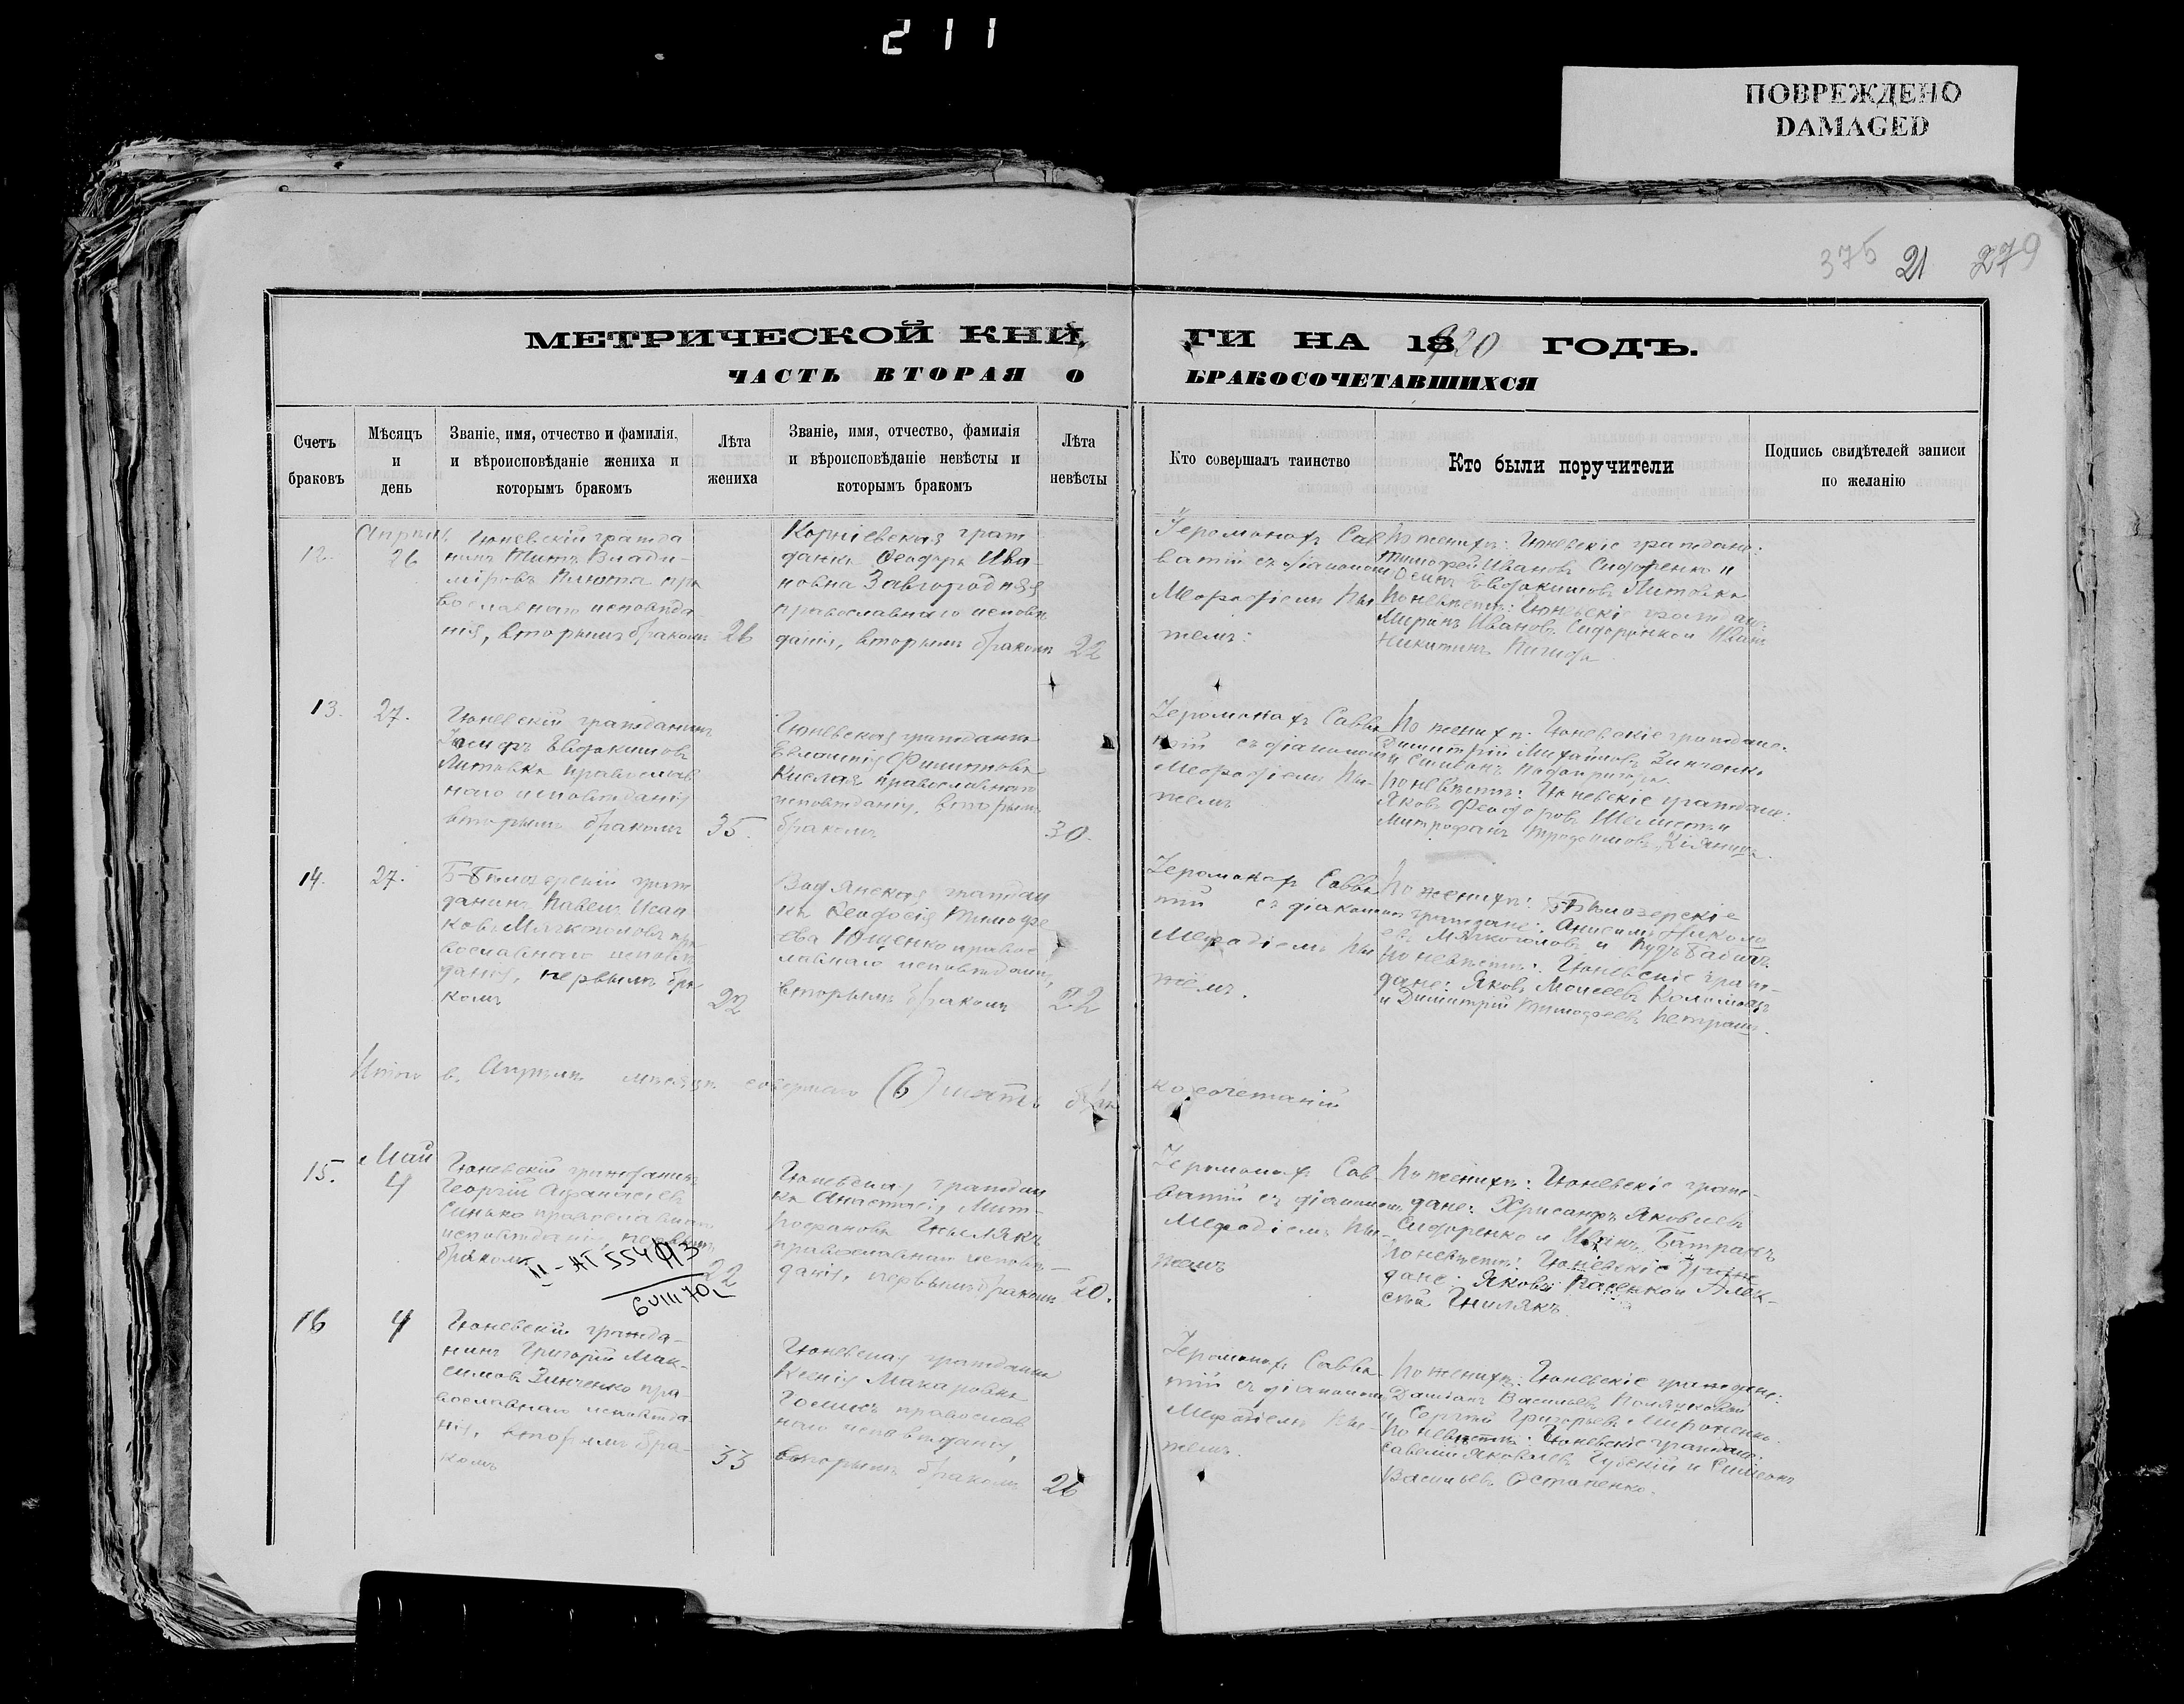 211
ПОВРЕЖДЕНО
DAMAGED
375 21 279
МЕТРИЧЕСКОЙ КНИ ГИ НА 1920 ГОДЪ.
ЧАСТЬ ВТОРАЯ О БРАКОСОЧЕТАВШИХСЯ
Счетъ
браковъ
Мѣсяцъ
и
день
Званіе, имя, отчество и фамилія,
и вѣроисповѣданіе жениха и
которымъ бракомъ
Лѣта
жениха
Званіе, имя, отчество, фамилія
и вѣроисповѣданіе невѣсты и
которымъ бракомъ
Лѣта
невѣсты
Кто совершалъ таинство
Кто были поручители
Подпись свидѣтелей записи
по желанію
12.
Апрѣль
26
Гюневскій гражда
нинъ Титъ Влади-
міровъ Плюта пра
вославнаго исповѣда
нія, вторымъ бракомъ
26
Корніевская граж
данка Феодора Ива
новна Завгородняя
православнаго исповѣ
данія, вторымъ бракомъ
22
Іеромонахъ Сав
ватій съ діакономъ
Меѳодіемъ Пы
темъ:
По женихѣ: Гюневскіе граждане:
Тимофей Ивановъ Сидоренко и
Осипъ Евдокимовъ Литовка
По невѣстѣ: Гюневскіе граждан.
Миронъ Ивановъ Сидоренко и Иванъ
Никитинъ
13.
27.
Гюневскій гражданинъ
Іосифъ Евдокимовъ
Литовка православ
наго исповѣданія
вторымъ бракомъ
35.
Гюневская гражданка
Евѳимія Филиппова
Кислая православнаго
исповѣданія, вторымъ
бракомъ
30.
Іеромонахъ Савва
тій съ діакономъ
Меѳодіемъ Пы-
темъ
По женихѣ: Гюневскіе граждане:
Димитрій Михайловъ Зинченко
и Стефанъ Подопригора
По невѣстѣ: Гюневскіе граждане:
Яковъ Феодоровъ Шелестъ и
Митрофанъ Кіяница.
14.
27.
Б-Бѣлозерскій граж
данинъ Павелъ Исаа
ковъ Мягкоголовъ пра
вославнаго исповѣ
данія, первымъ бра
комъ
22
гражданк
ка Феодосія Тимофе
ева Ющенко правос
лавнаго исповѣданія,
вторымъ бракомъ
22
Іеромонахъ Савва
тій съ діакономъ
Меѳодіемъ Пы
темъ.
По женихѣ: Б-Бѣлозерскіе
граждане: Анисимъ Николо
евъ Мягкоголовъ и
По невѣстѣ: Гюневскіе граж-
дане: Яковъ Моисеевъ Коломоецъ
и Димитрій Тимофеевъ Петраш.
Итого въ Апрѣлѣ мѣсяцѣ совершено (6) шесть бра косочетаній
15.
Май
4
Гюневскій гражданинъ
Георгій Афанасіевъ
Синько православнаго
исповѣданія, первымъ
бракомъ
22
II-АП 554913
6 VIII 70г.
Гюневская граждан
ка Анастасія Мит-
рофанова Гнылякъ
православнаго исповѣ-
данія, первымъ бракомъ
20.
Іеромонахъ Сав-
ватій съ діакономъ
Меѳодіемъ Пы-
темъ
По женихѣ: Гюневскіе граж-
дане: Хрисанфъ Яковлевъ
Сидоренко и Иванъ Батракъ
По невѣстѣ: Гюневскіе граж
дане: Яковъ Пасенко и Алек-
сѣй Гнилякъ.
16
4
Гюневскій гражда-
нинъ Григорій Мак-
симовъ Зинченко пра-
вославнаго исповѣда
нія, вторымъ бра-
комъ
33
Гюневская гражданка
Ксенія Макаровна
Голикъ православ
наго исповѣданія,
вторымъ бракомъ
26
Іеромонахъ Савва
тій съ діакономъ
Меѳодіемъ Пы-
темъ.
По женихѣ: Гюневскіе граждане:
Даміанъ Васильевъ
и Сергій Григорьевъ Мироненко.
По невѣстѣ: Гюневскіе граждане:
Савелій Яковлевъ Губскій и Симеонъ
Васильевъ Остапенко.